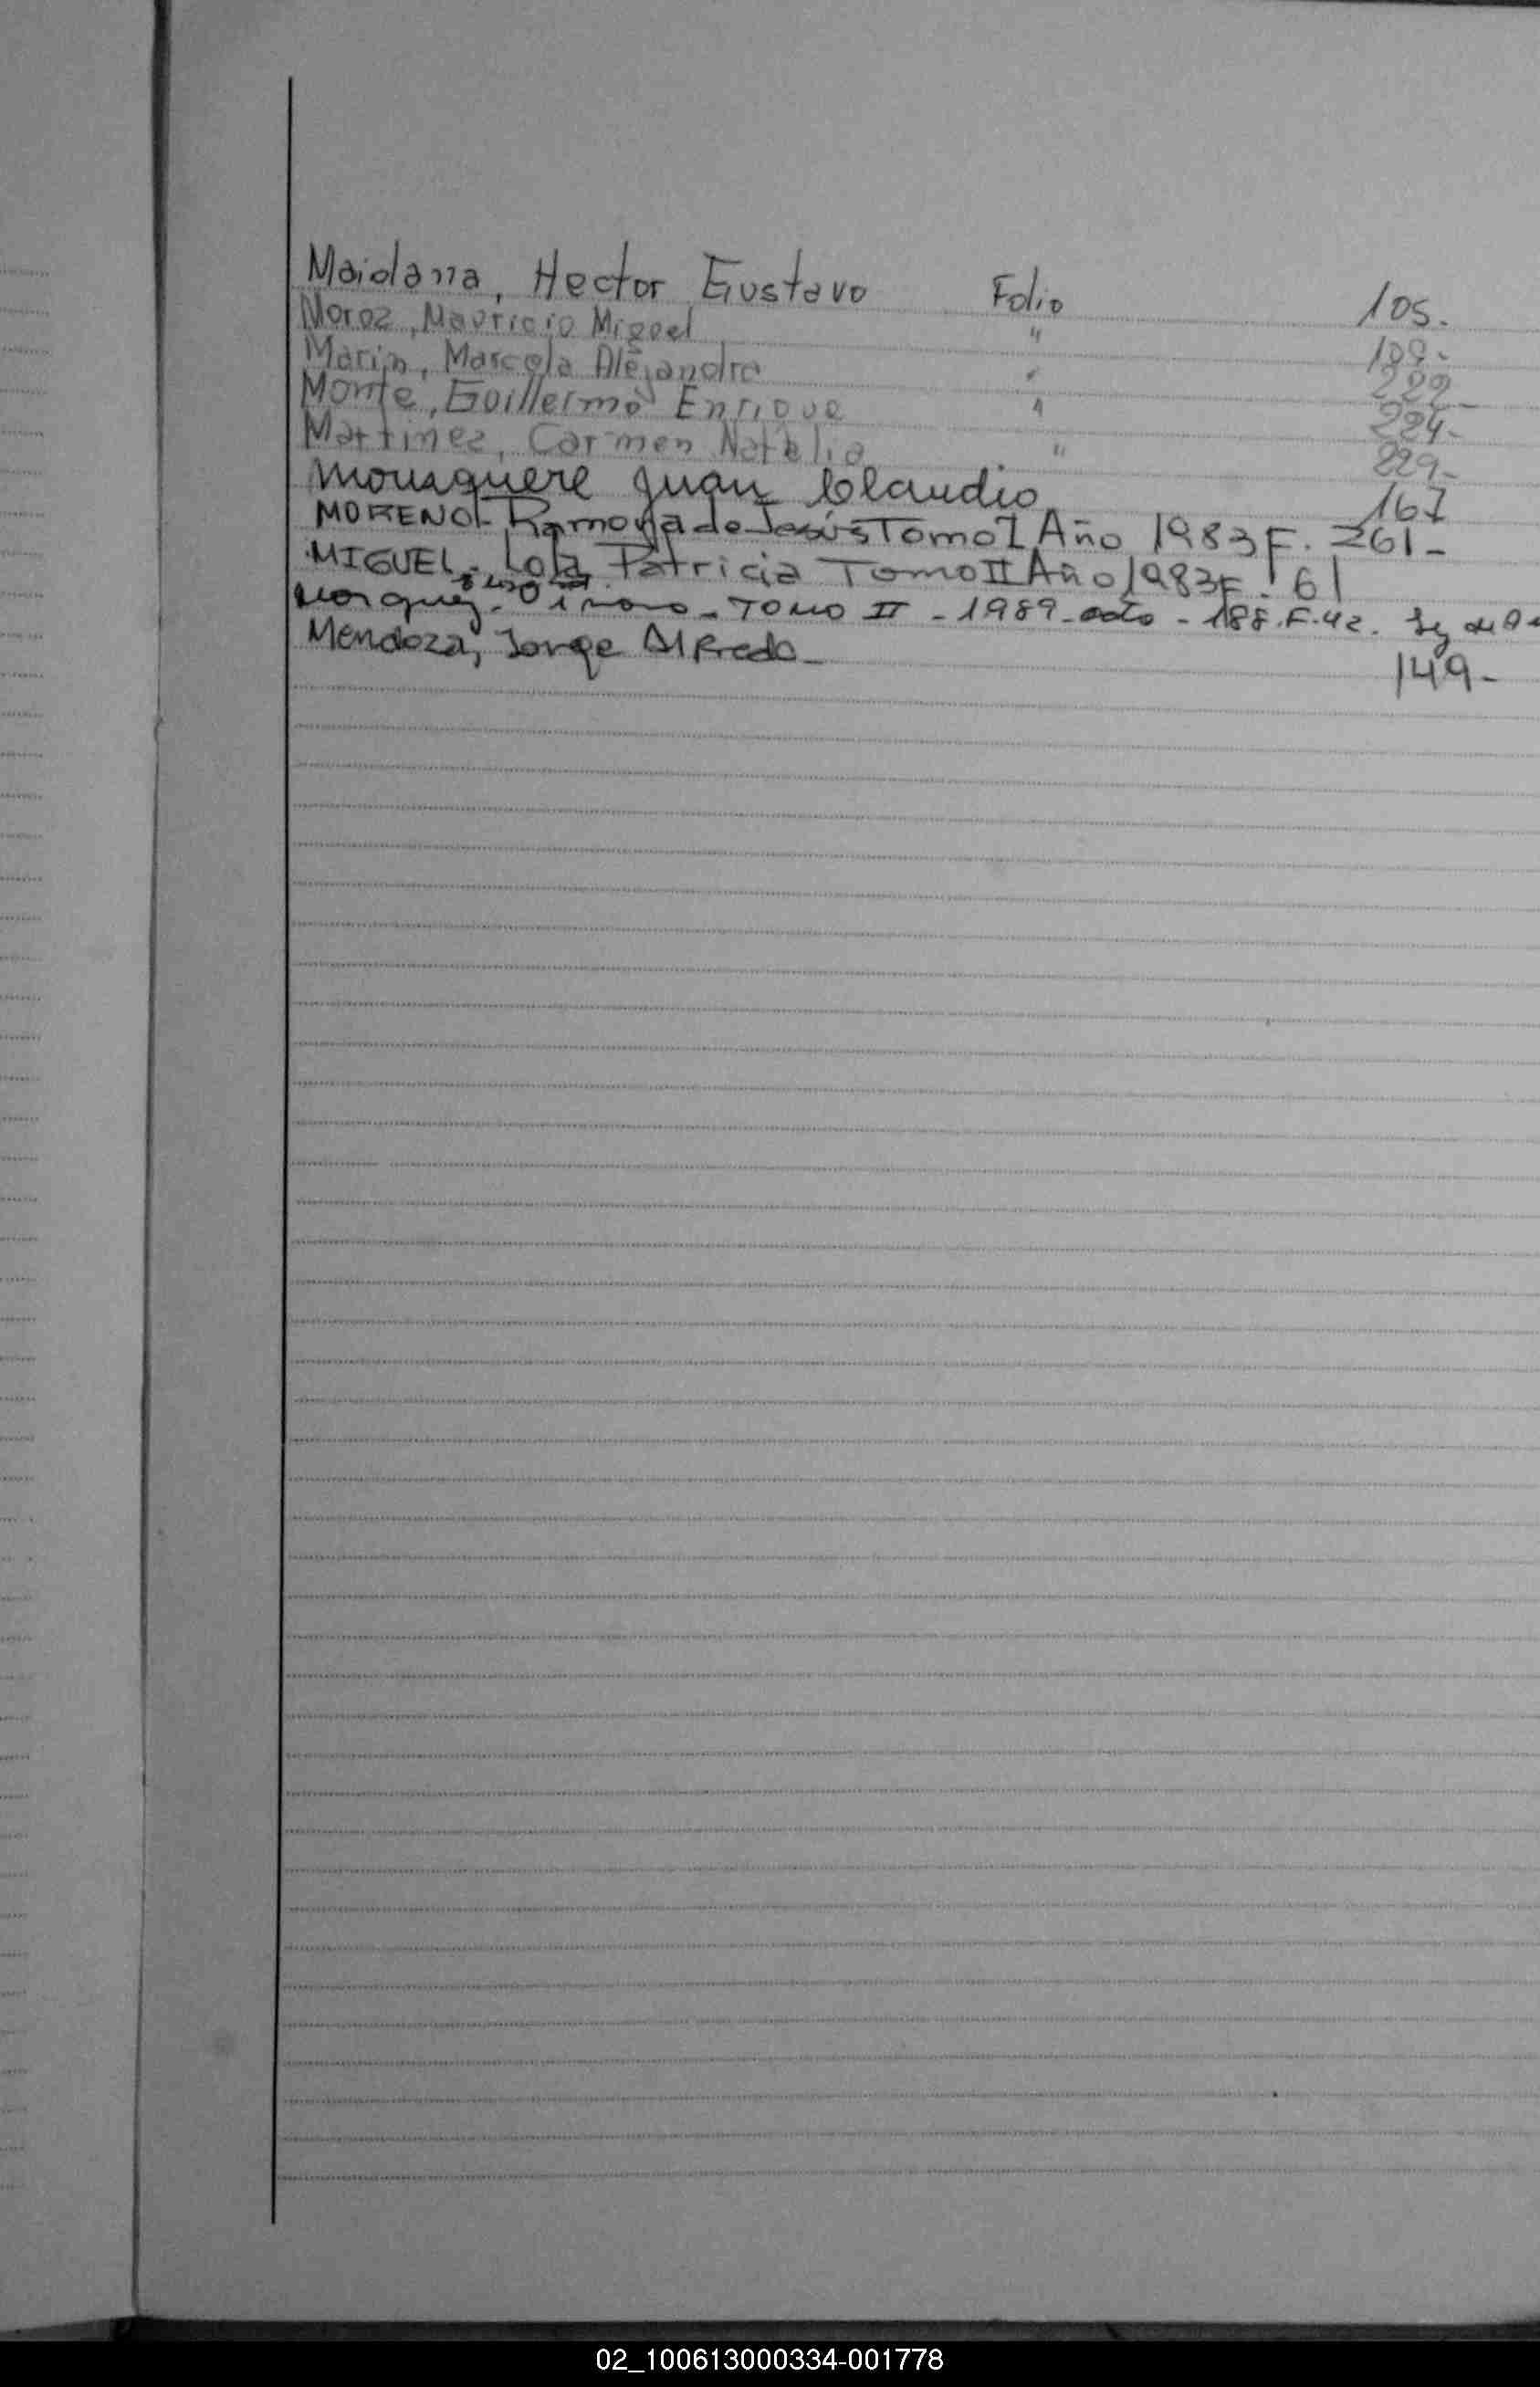 Maidana, Hector Gustavo Folio 105.
Moroz, Mauricio Miguel " 109-
Marin, Marcela Alejandra " 222
Monte, Guillermo Enrique " 224-
Martinez, Carmen Natalia " 229-
Mousquere Juan Claudio 167
MORENO- Ramona de Jesús Tomo I Año 1983 F. 261-
MIGUEL- Lola Patricia Tomo II Año 1983 F. 61
Marquez - TOMO II - 1989 - acta - 188. F. 42.
Mendoza, Jorge Alfredo- 149-
02_100613000334-001778